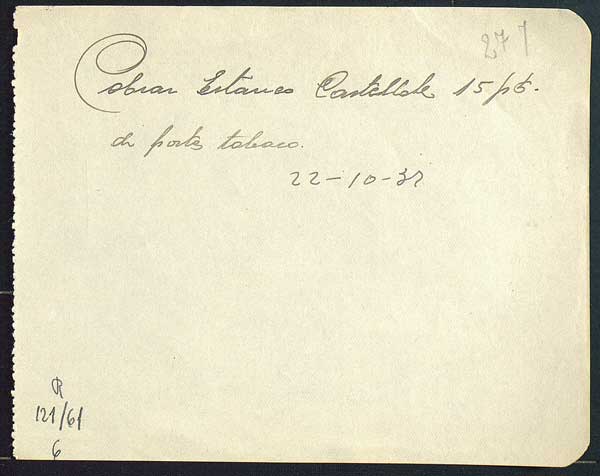 27
Cobrar Estanco Castellote 15 pts.
de portes tabaco.
22-10-37
R
121/61
6